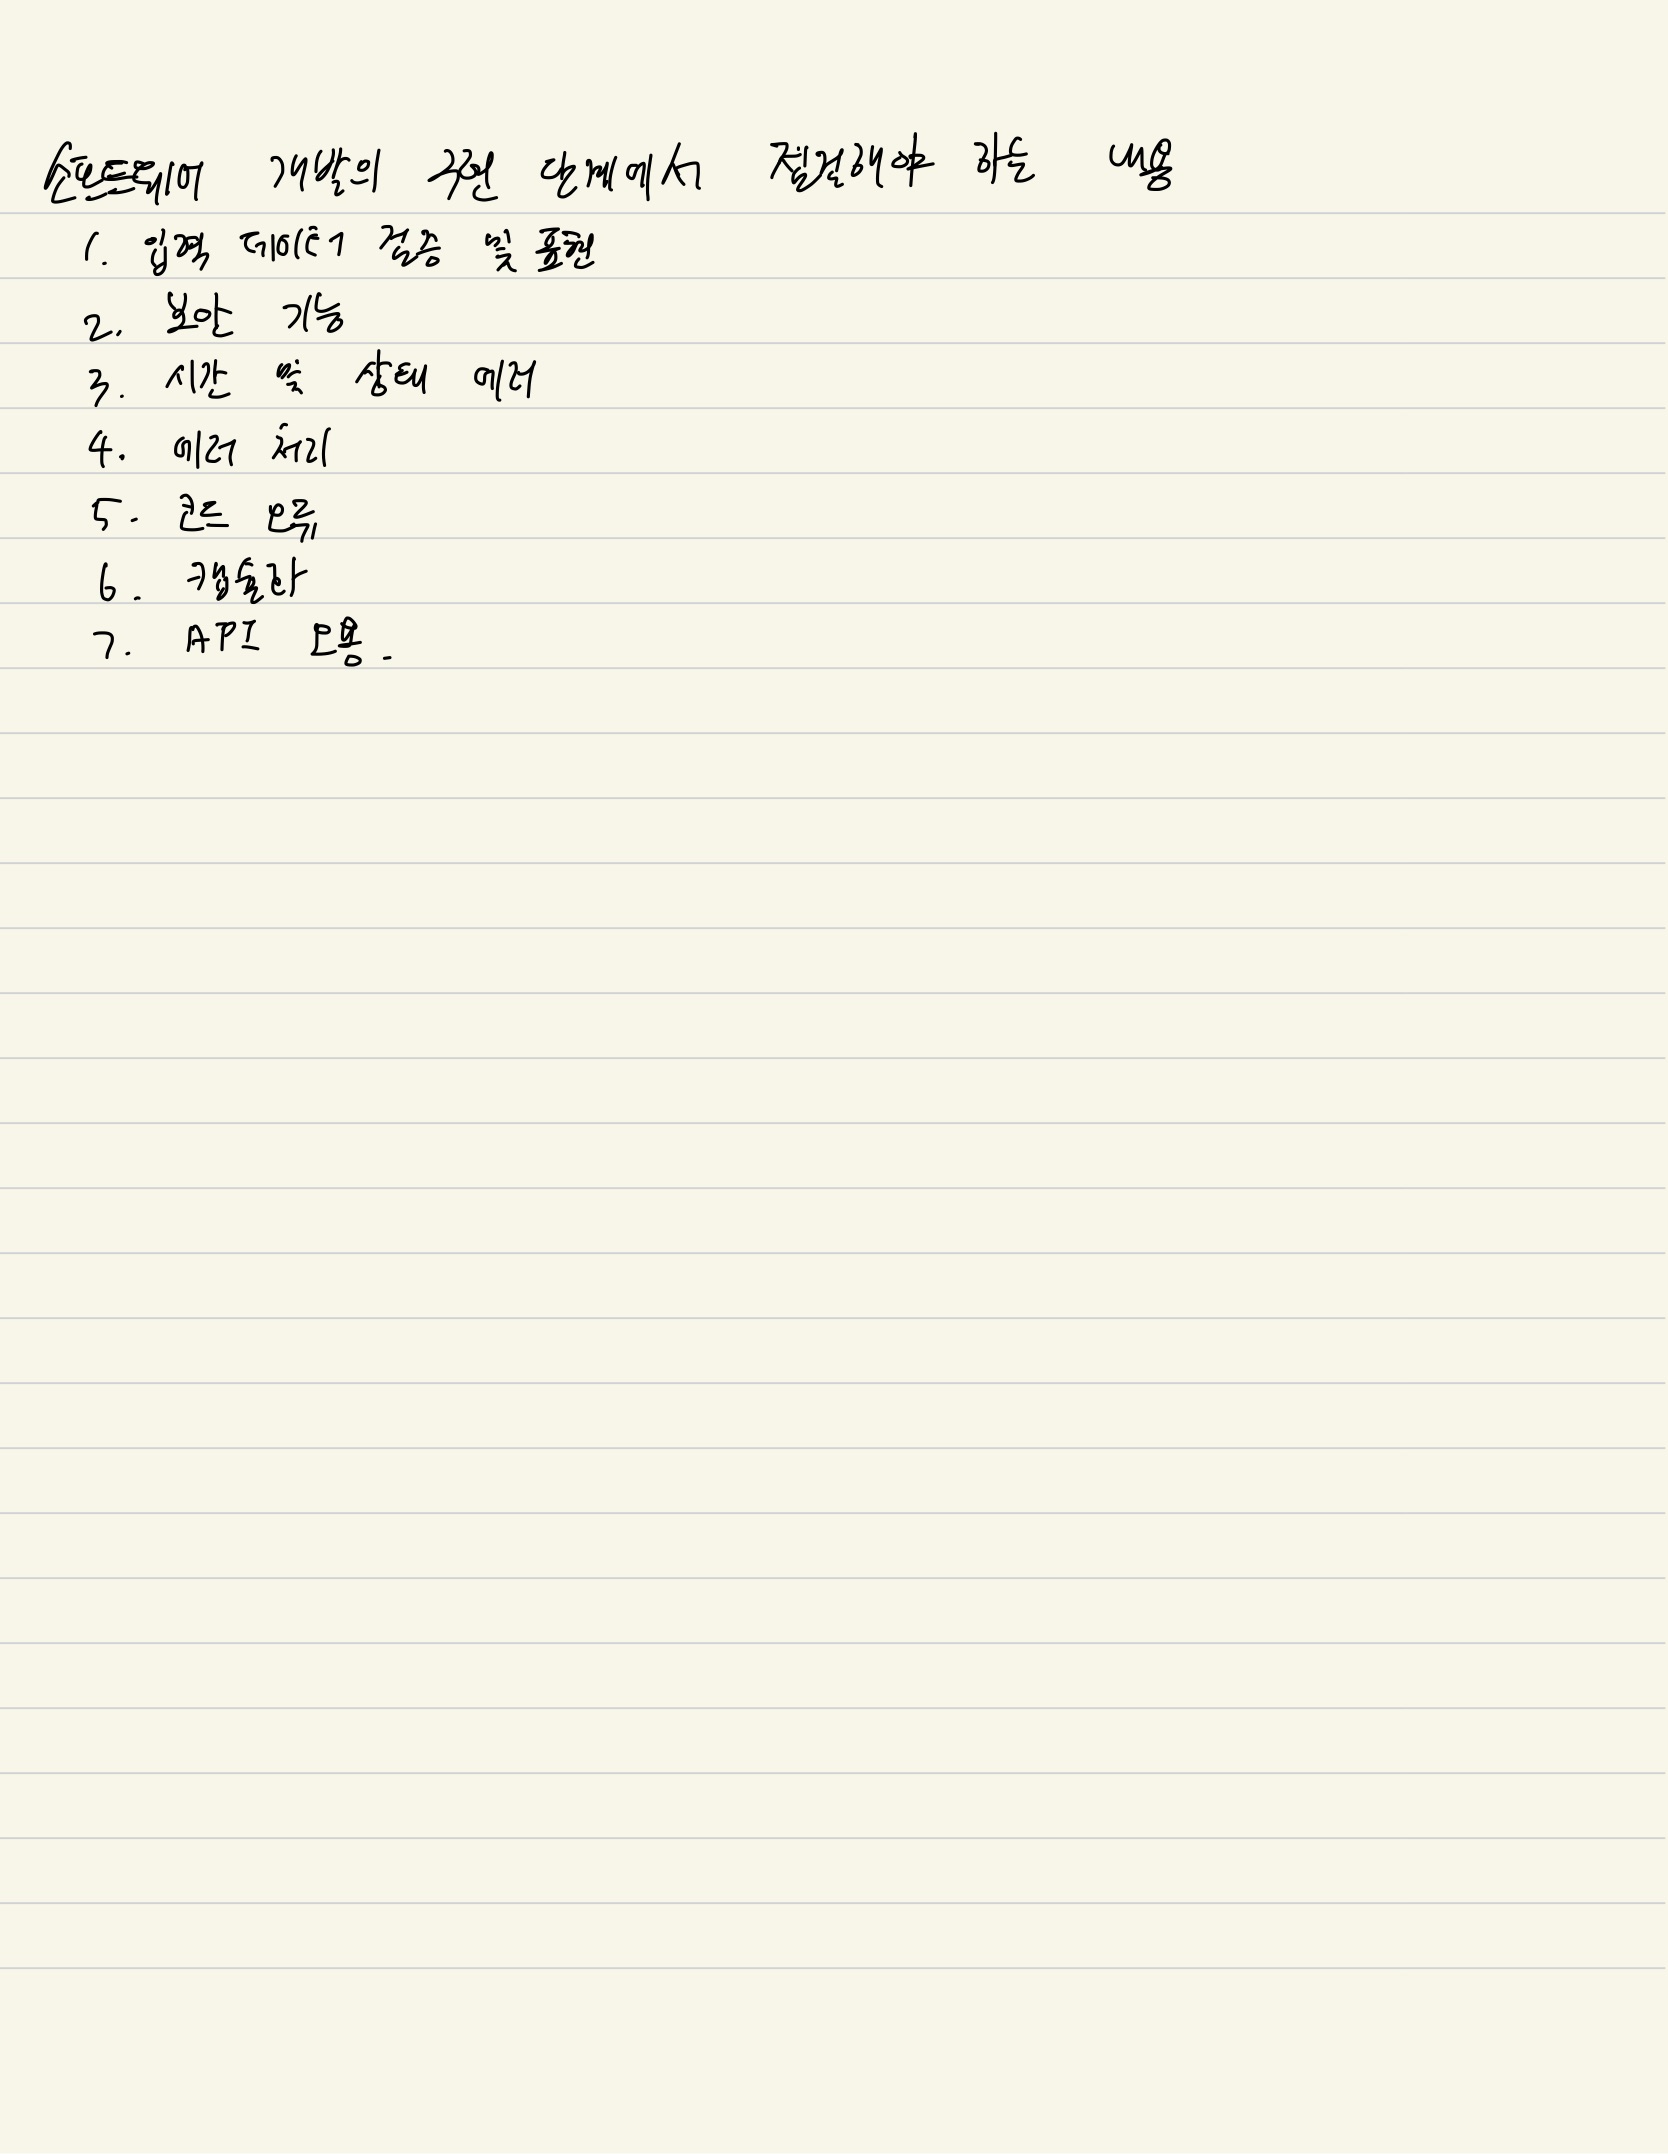 소프트웨어 개발의 구현 단계에서 점검해야 하는 내용
1. 입력 데이터 검증 및 표현
2. 보안 기능
3. 시간 및 상태 에러
4. 에러 처리
5. 코드 오류
6. 캡슐화
7. API 오용.